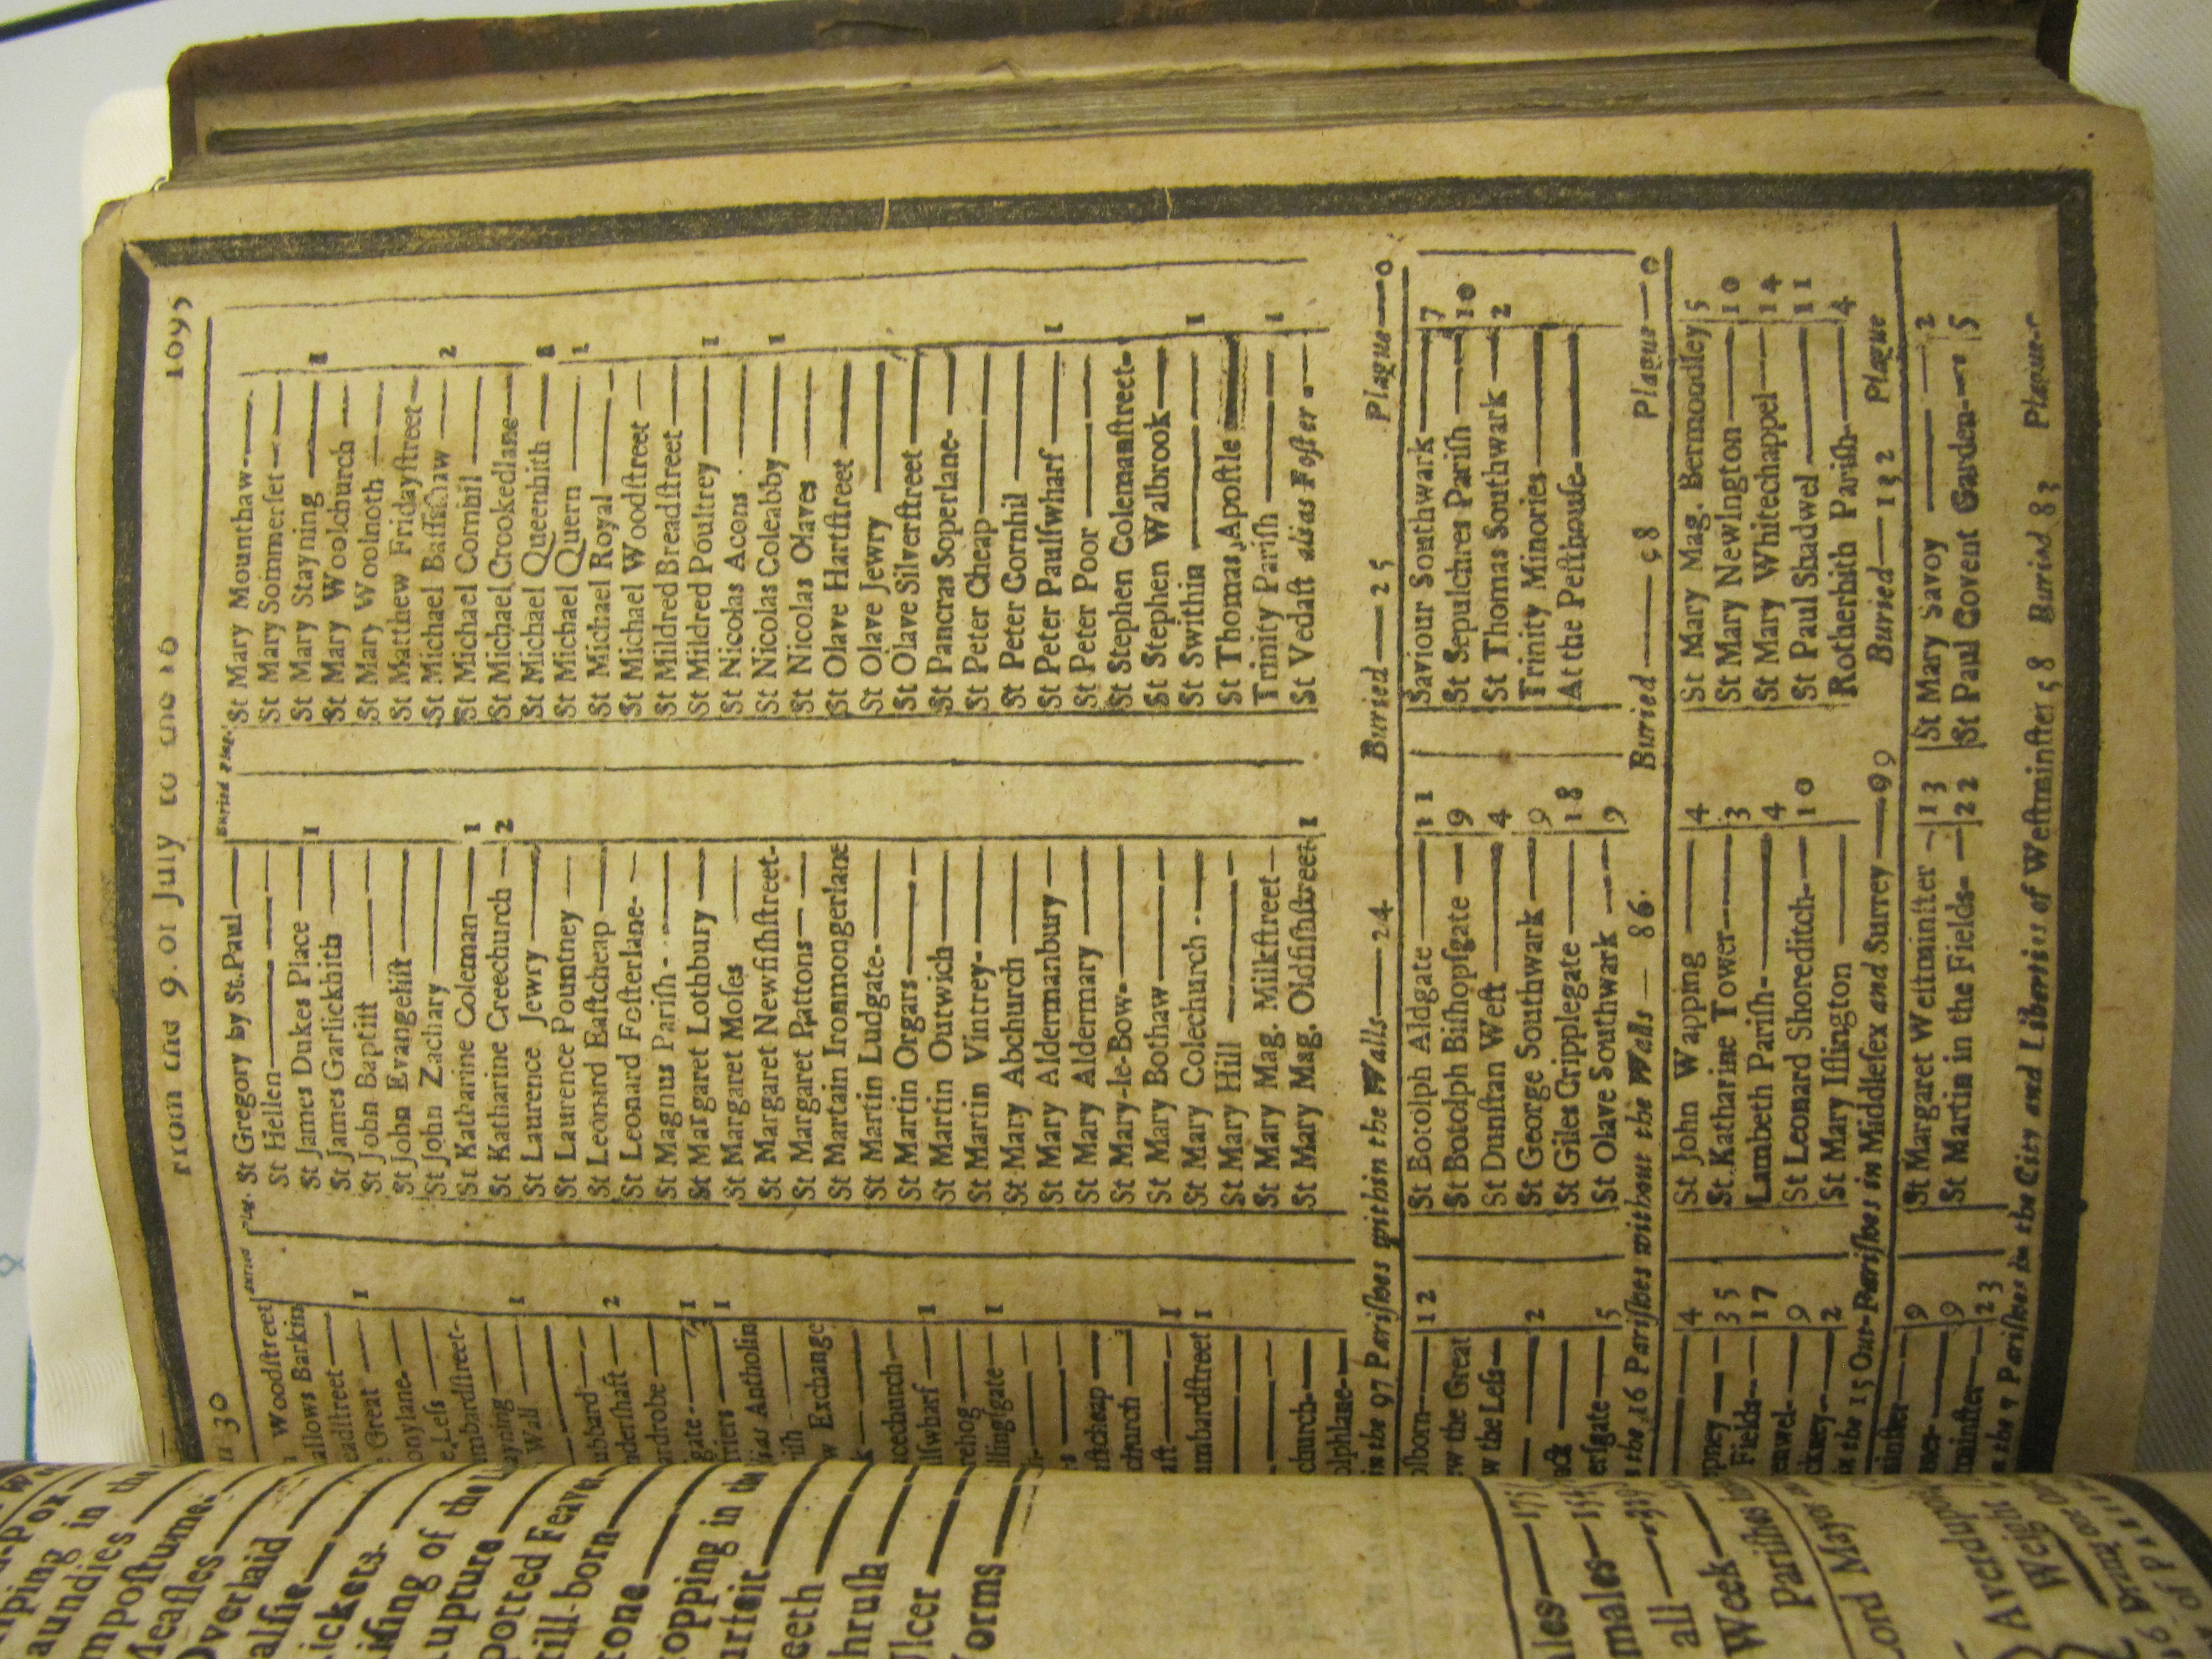 From the 9. of July to the 16 1695
30
Buried Plag.
Woodstreet
allows Barkin
eadstreet—
Great — 1
onylane-
e Less
mbardstreet-
ayning — 1
Wall
ubbard
ndershaft — 2
ardrobe
gate — 1
rriers — 1
lias Antholin
ish
w Exchange
k
acechurch
lswharf — 1
rehog
llingsgate — 1
astcheap
church
aft — 1
umbardstreet 1
church-
olphlane-
St Gregory by St. Paul
St Hellen
St James Dukes Place — 1
St James Garlickhith
St John Baptist
St John Evangelist
St John Zachary
St Katharine Coleman — 1
St Katharine Creechurch — 2
St Laurence Jewry
St Laurence Pountney
St Leonard Eastcheap
St Leonard Fosterlane-
St Magnus Parish
St Margaret Lothbury
St Margaret Moses
St Margaret Newfishstreet-
St Margaret Pattons
St Martain Ironmongerlane
St Martin Ludgate-
St Martin Orgars
St Martin Outwich
St Martin Vintrey-
St Mary Abchurch
St Mary Aldermanbury
St Mary Aldermary
St Mary-le-Bow-
St Mary Bothaw
St Mary Colechurch
St Mary Hill
St Mary Mag. Milkstreet
St Mary Mag. Oldfishstreet 1
Buried Plag.
St Mary Mounthaw
St Mary Sommerset
St Mary Stayning — 1
St Mary Woolchurch
St Mary Woolnoth
St Matthew Fridaystreet
St Michael Bassishaw — 2
St Michael Cornhil
St Michael Crookedlane
St Michael Queenhith — 1
St Michael Quern — 1
St Michael Royal
St Michael Woodstreet
St Mildred Breadstreet
St Mildred Poultrey — 1
St Nicolas Acons
St Nicolas Coleabby — 1
St Nicolas Olaves
St Olave Hartstreet
St Olave Jewry
St Olave Silverstreet
St Pancras Soperlane-
St Peter Cheap
St Peter Cornhil
St Peter Paulswharf — 1
St Peter Poor
St Stephen Colemanstreet-
St Stephen Walbrook
St Swithin — 1
St Thomas Apostle
Trinity Parish — 1
St Vedast alias Foster
in the 97 Parishes within the Walls — 24 Buried — 25 Plague — 0
olborn — 12 St Botolph Aldgate — 11 Saviour Southwark — 7
ew the Great St Botolph Bishopsgate — 9 St Sepulchres Parish — 10
w the Less St Dunstan West — 4 St Thomas Southwark — 2
2 St George Southwark — 9 Trinity Minories
St Giles Cripplegate — 18 At the Pesthouse
ersgate — 5 St Olave Southwark — 9
the 16 Parishes without the Walls — 86. Buried — 58 Plague — 0
4 St John Wapping — 4 St Mary Mag. Bermondley 5
pney — 35 St. Katharine Tower — 3 St Mary Newington — 10
Fields — 17 Lambeth Parish — 4 St Mary Whitechappel — 14
9 St Leonard Shoreditch — 10 St Paul Shadwel — 11
ckney — 2 St Mary Islington Rotherhith Parish — 4
the 15 Out-Parishes in Middlesex and Surrey — 99 Buried — 132 Plague
9 St Margaret Westminster — 13 St Mary Savoy — 2
9 St Martin in the Fields — 22 St Paul Covent Garden — 5
minster — 23
the 7 Parishes in the City and Liberties of Westminster 58 Buried 83 Plague
aundies
mpostume
Measles
Overlaid
alsie
ickets
ising of the
upture
potted Feaver
till-born
tone
topping in
urfeit
eeth
hrush
Ulcer
orms
ales — 171
males — 154
all
Week
Parishes
Lord Mayor
Averdupois
Weight